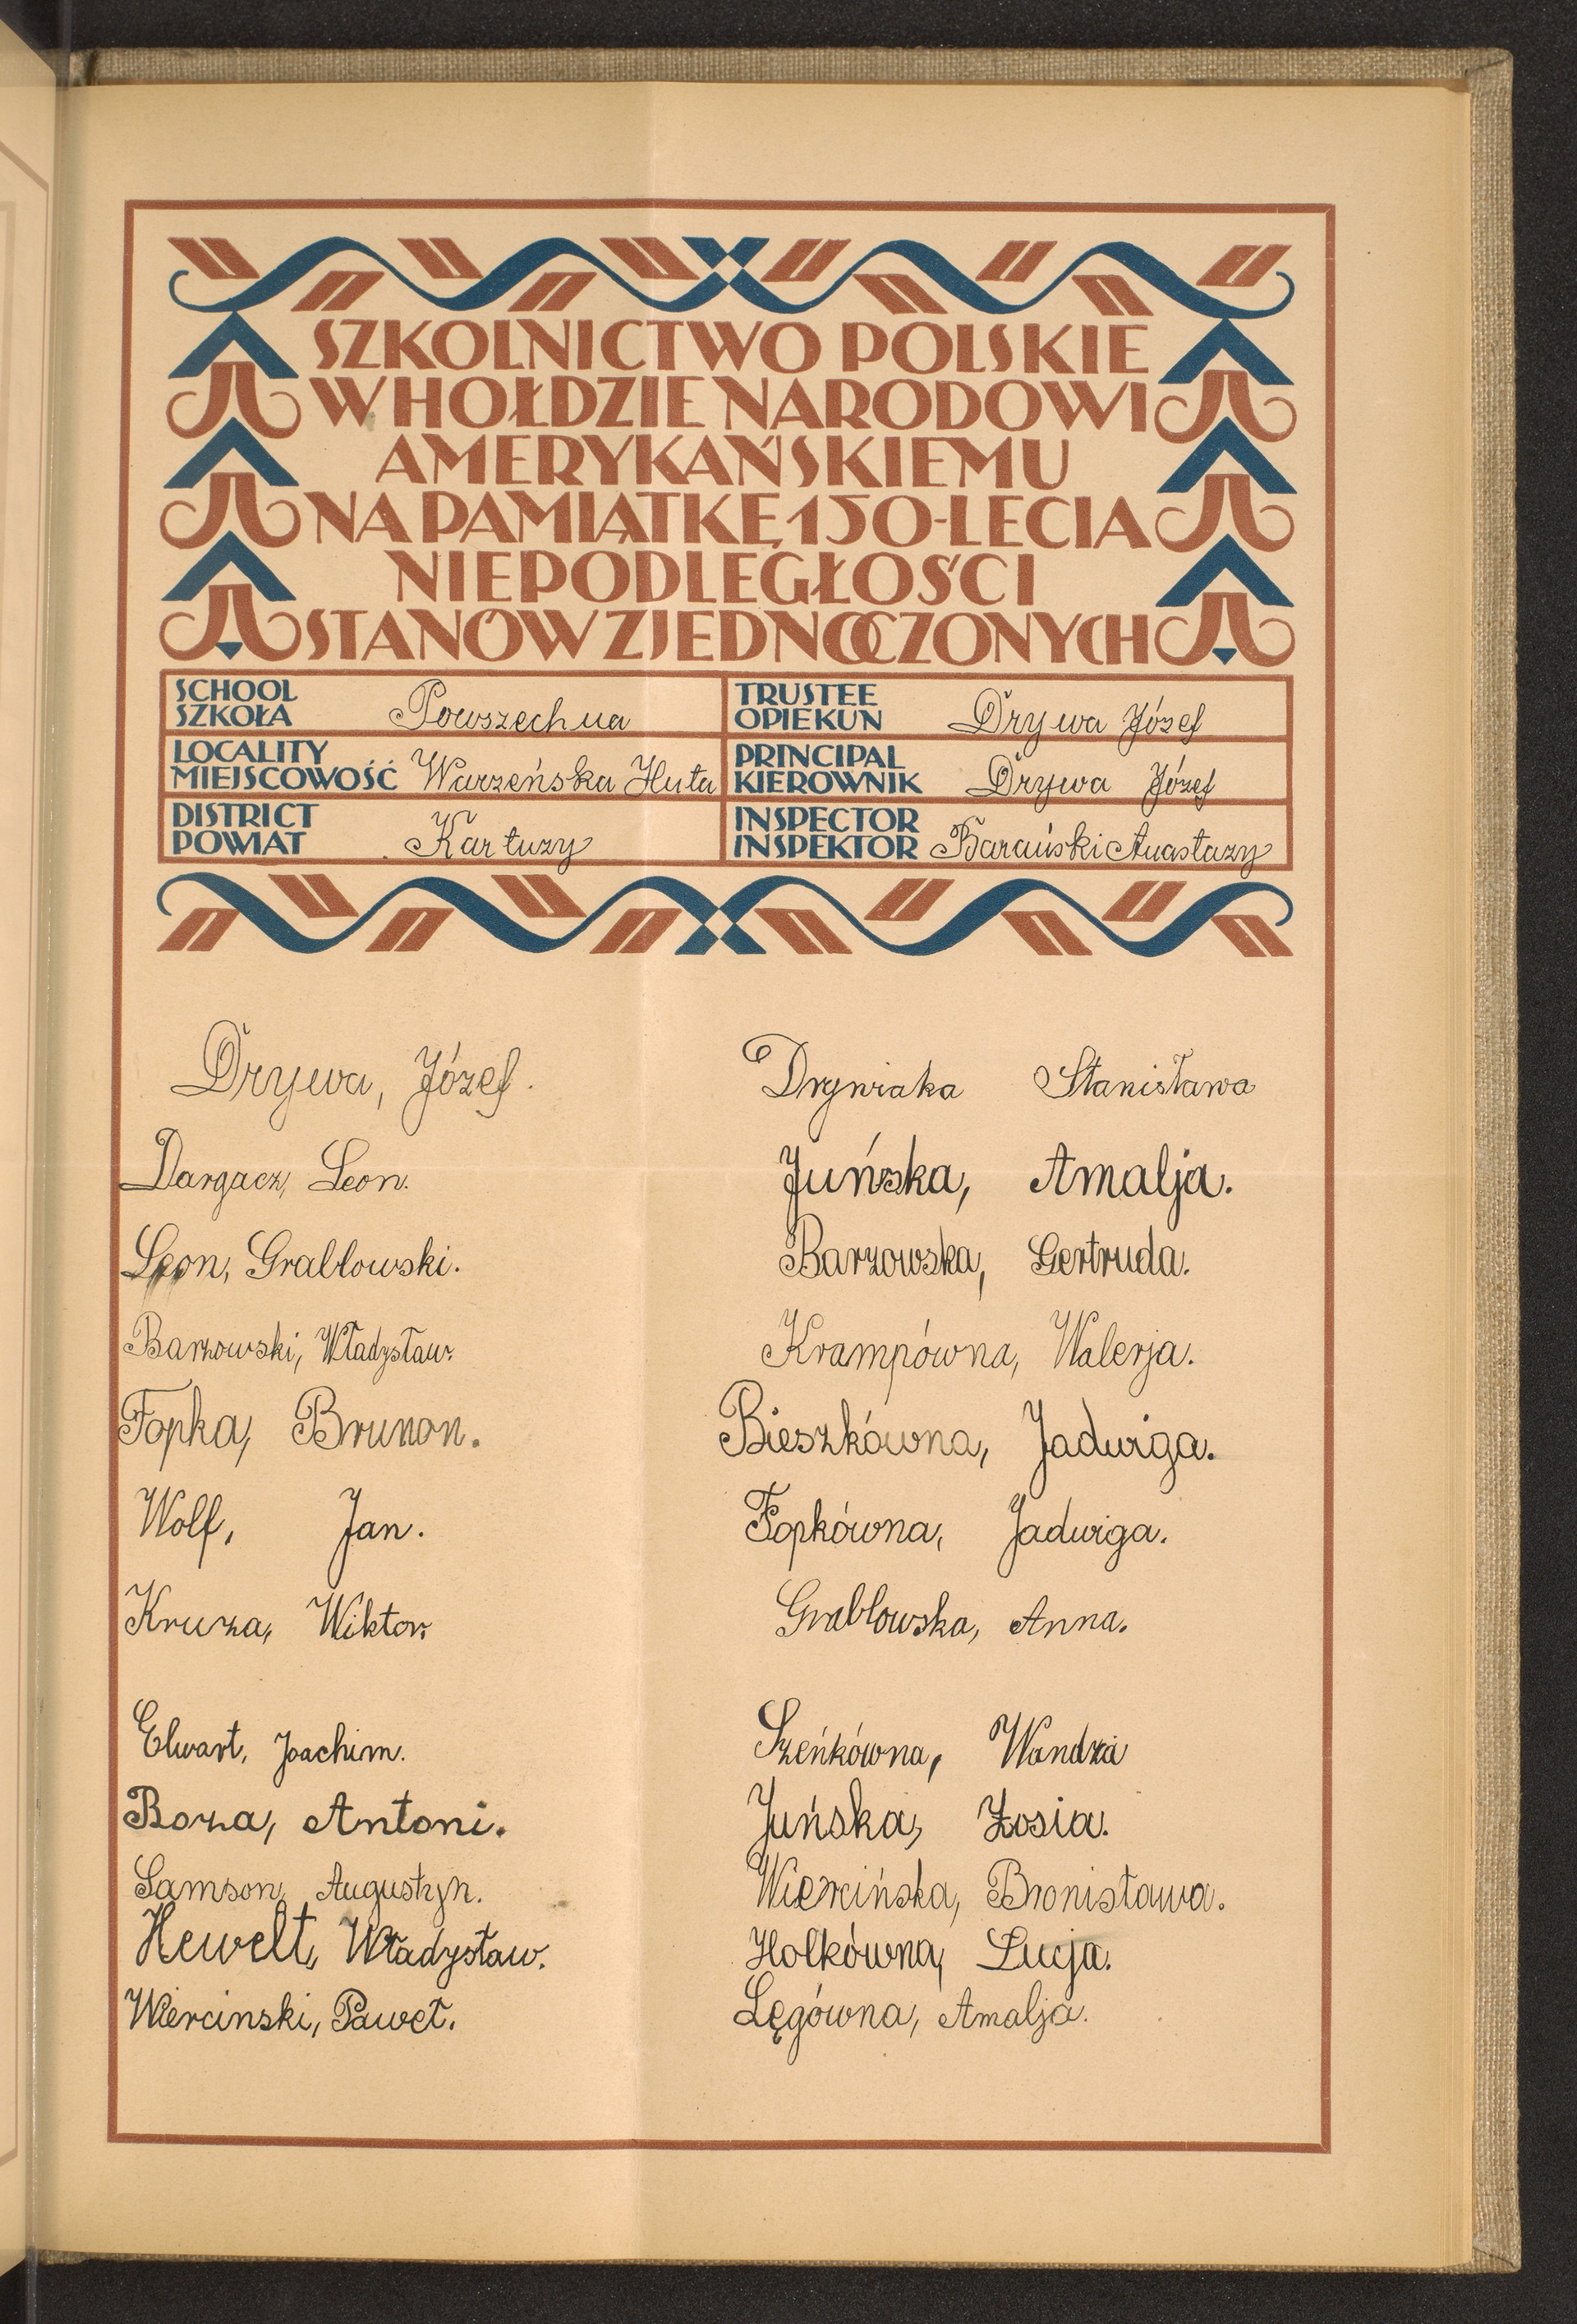 SZKOLNICTWO POLSKIE
W HOŁDZIE NARODOWI
AMERYKAŃSKIEMU
NA PAMIĄTKĘ 150-LECIA
NIEPODLEGŁOŚCI
STANÓW ZJEDNOCZONYCH
SCHOOL
SZKOŁA Powszechna
TRUSTEE
OPIEKUN Drywa Józef
LOCALITY
MIEJSCOWOŚĆ Warzeńska Huta
PRINCIPAL
KIEROWNIK Drywa Józef
DISTRICT
POWIAT Kartuzy
INSPECTOR
INSPEKTOR Barański Anastazy
Drywa, Józef.
Dargacz, Leon.
Leon, Grablowski.
Barzowski, Władysław.
Fopka, Brunon.
Wolf, Jan.
Kruza, Wiktor.
Elwart, Joachim.
Roza, Antoni.
Samson, Augustyn.
Hewelt, Władysław.
Wiercinski, Paweł.
Drywiaka Stanisława
Juńska, Amalja.
Barzowska, Gertruda.
Krampówna, Walerja.
Bieszkówna, Jadwiga.
Fopkówna, Jadwiga.
Grablowska, Anna.
Szeńkówna, Wandzia
Juńska, Zosia.
Wiercińska, Bronisława.
Holkówna, Łucja.
Lęgówna, Amalja.